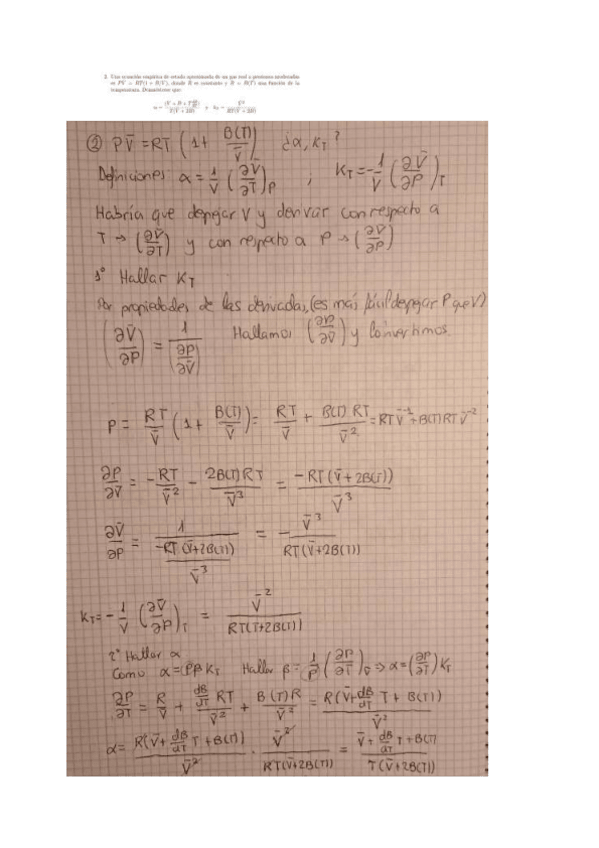 2. Una ecuación empírica de estado aproximada de un gas real a presiones moderadas
es PV̄ = RT(1 + B/V̄), donde R es constante y B = B(T) una función de la
temperatura. Demuéstrese que:
α = (V̄ + B + T dB/dT) / T(V̄ + 2B) y k_T = V̄² / RT(V̄ + 2B)
② PV̄ = RT (1 + B(T)/V̄) ¿α, K_T?
Definiciones: α = 1/V̄ (∂V̄/∂T)_P ; K_T = -1/V̄ (∂V̄/∂P)_T
Habría que depejar V y derivar con respecto a
T → (∂V̄/∂T) y con respecto a P → (∂V̄/∂P)
1º Hallar K_T
Por propiedades de las derivadas, (es más fácil depejar P que V)
(∂V̄/∂P) = 1/(∂P/∂V̄) Hallamos (∂P/∂V̄) y lo invertimos.
P = RT/V̄ (1 + B(T)/V̄) = RT/V̄ + B(T) RT/V̄² = RT V̄⁻¹ + B(T) RT V̄⁻²
∂P/∂V̄ = -RT/V̄² - 2B(T)RT/V̄³ = -RT(V̄ + 2B(T))/V̄³
∂V̄/∂P = 1/(-RT(V̄+2B(T))/V̄³) = - V̄³/RT(V̄+2B(T))
K_T = -1/V̄ (∂V̄/∂P)_T = V̄²/RT(T+2B(T))
2º Hallar α
Como α = Pβ K_T Hallar β = 1/P (∂P/∂T)_V̄ ⇒ α = (∂P/∂T) K_T
∂P/∂T = R/V̄ + dB/dT RT/V̄² + B(T)R/V̄² = R(V̄ + dB/dT T + B(T))/V̄²
α = R(V̄ + dB/dT T + B(T))/V̄² · V̄²/RT(V̄+2B(T)) = V̄ + dB/dT T + B(T)/T(V̄+2B(T))